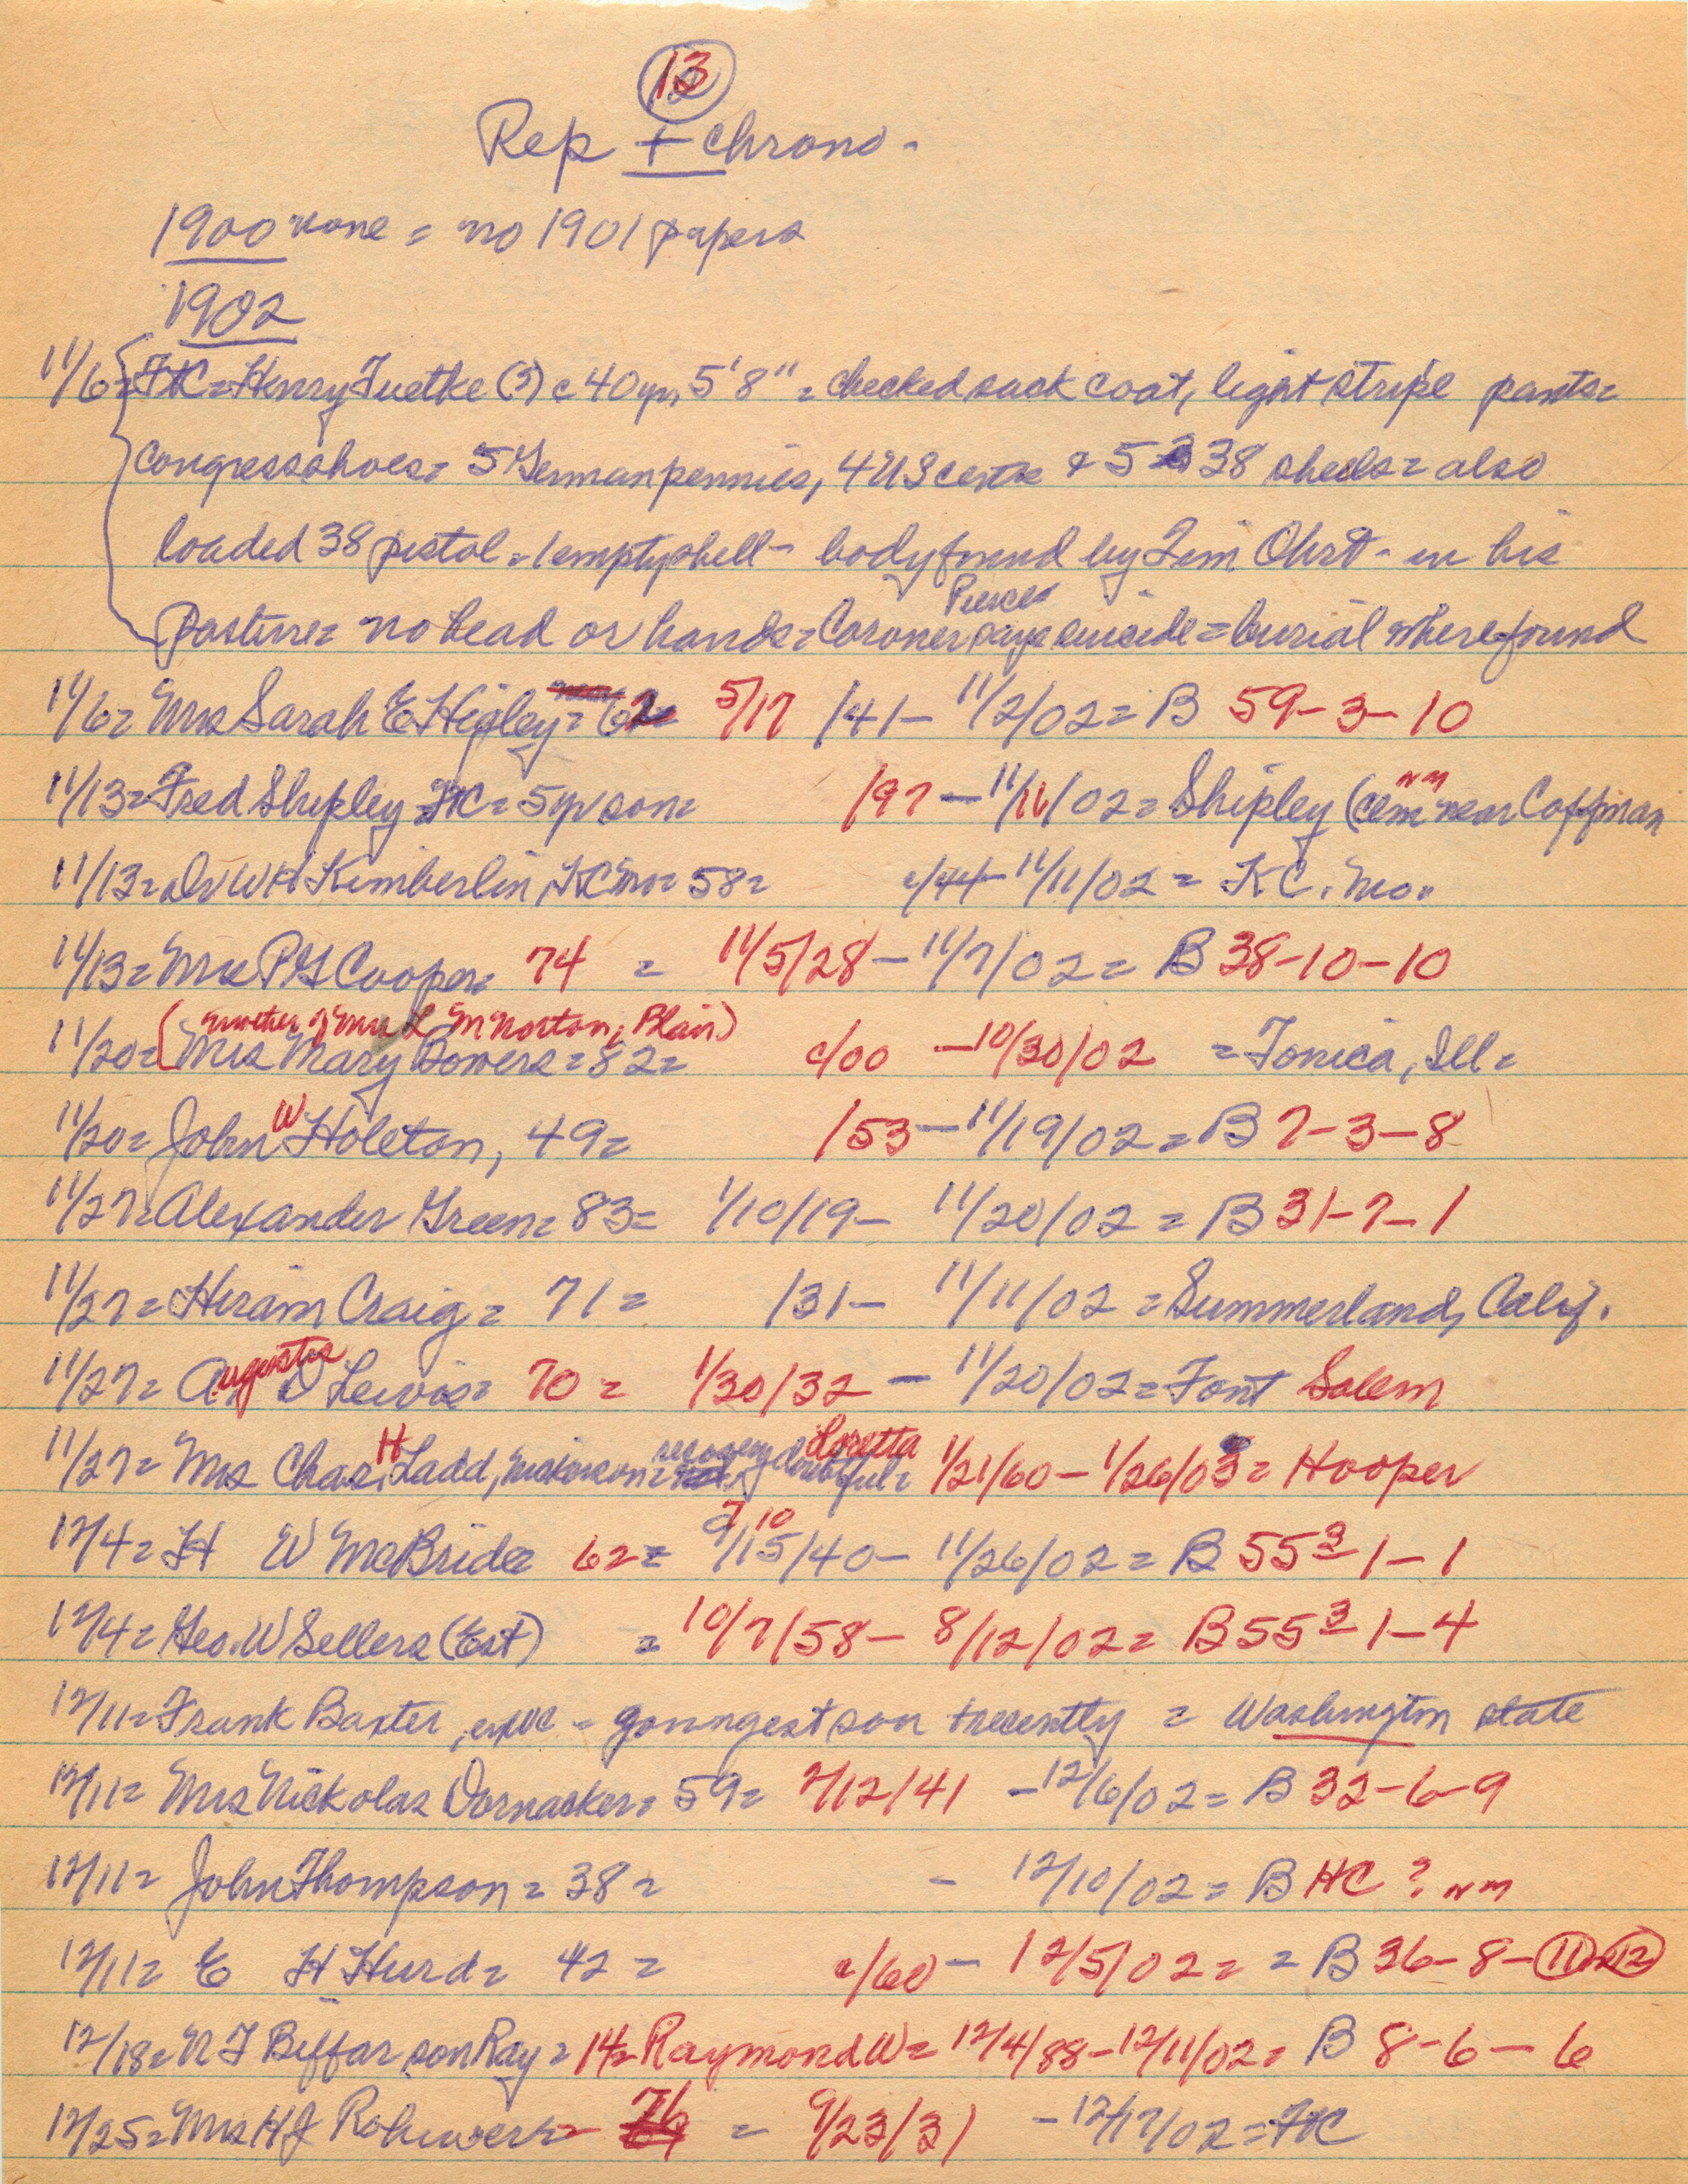 13
Rep + Chrono -
1900 none = no 1901 papers
1902
11/6 = FtC = Henry Tuetke (?) c 40 yr, 5'8" = checked sack coat, light stripe pants =
congress shoes = 5 German pennies, 4 US cents & 5 38 shells = also
loaded 38 pistol = 1 empty shell - body found by Jim Ohrt - in his
Pierces
pasture = no head or hands = Coroner says suicide = burial where found
11/6 = Mrs Sarah E Higley = 62 5/17 /41 - 11/2/02 = B 59-3-10
11/13 = Fred Shipley FtC = 5 yr son = /97 - 11/11/02 = Shipley (cem nm near Coffman
11/13 = Dr W H Kimberlin, KC Mo = 58 = c/44 - 11/11/02 = KC. Mo.
11/13 = Mrs P G Cooper = 74 = 11/5/28 - 11/7/02 = B 38-10-10
(mother of Mrs L M Norton, Blair)
11/20 = Mrs Mary Bowers = 82 = c/00 - 10/30/02 = Tonica, Ill =
11/20 = John W Holeton, 49 = /53 - 11/19/02 = B 7-3-8
11/27 = Alexander Green = 83 = 1/10/19 - 11/20/02 = B 31-7-1
11/27 = Hiram Craig = 71 = /31 - 11/11/02 = Summerland, Calif.
11/27 = Augustus O Lewis = 70 = 1/30/32 - 11/20/02 = Font Salem
11/27 = Mrs Chas. H Ladd, Nickerson = recovery doubtful = Loretta 1/21/60 - 1/26/03 = Hooper
12/4 = H W McBride 62 = 9/15/40 - 11/26/02 = B 55 3 - 1 - 1
12/4 = Geo. W Sellers (Est) = 10/7/58 - 8/12/02 = B 55 3 - 1 - 4
12/11 = Frank Baxter, = youngest son † recently = Washington state
12/11 = Mrs Nickolas Dornacker = 59 = 2/12/41 - 12/6/02 = B 32-6-9
12/11 = John Thompson = 38 = - 12/10/02 = B HC ? nm
12/11 = E H Hurd = 42 = c/60 - 12/5/02 = = B 36-8-11 12
12/18 = N J Biffar son Ray = 14 = Raymond W = 12/4/88 - 12/11/02 = B 8-6-6
12/25 = Mrs H J Rohwer = 76 = 9/23/31 - 12/17/02 = FtC